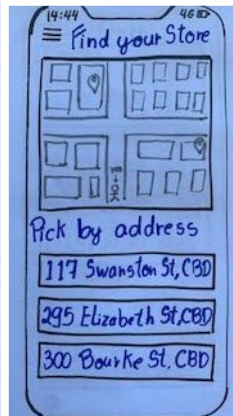 14:44 4G
Find your Store
You
Pick by address
117 Swanston St, CBD
295 Elizabeth St, CBD
300 Bourke St, CBD